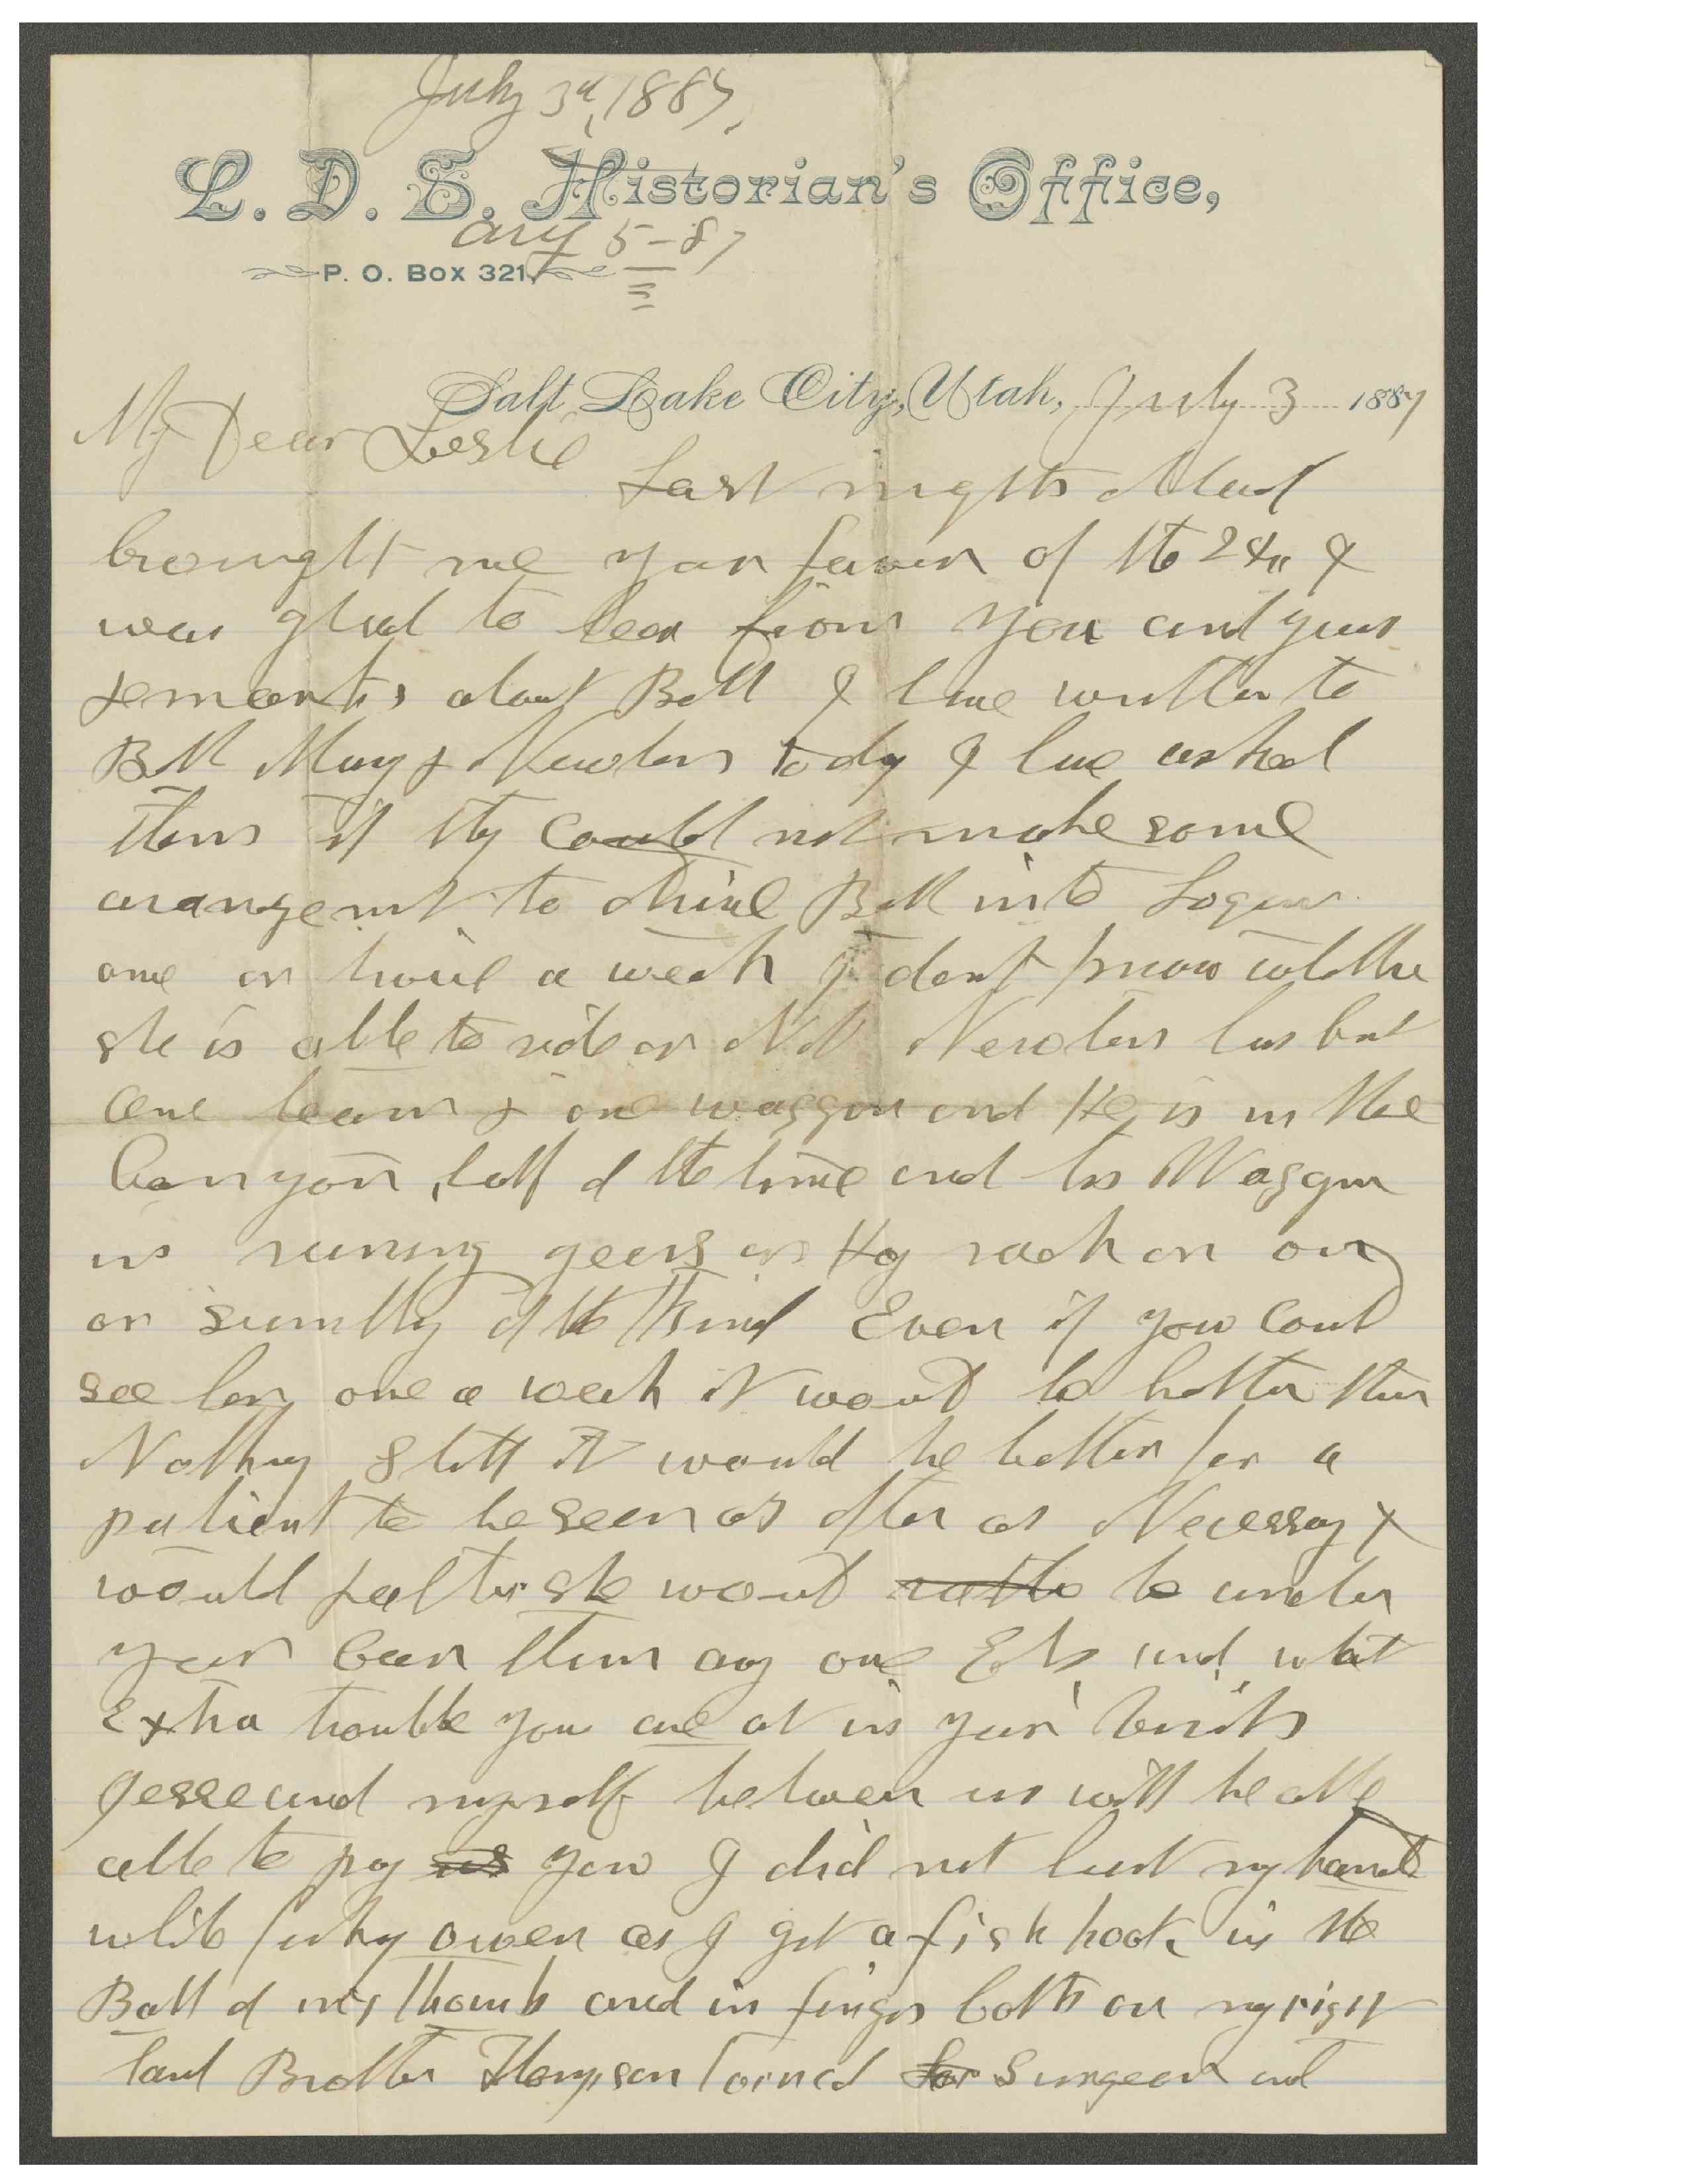 July 3d, 1887,
L. D. S. Historian's Office,
Ansd 5-87
P. O. Box 321,
Salt Lake City, Utah, July 3 1887
My Dear Leslie
Last nights Mail
brought me your favor of the 2 &
was glad to hear from you and your
remarks about Bell I have written to
Bell Mary & Newton to day I have asked
them if they could not make some
arangemnt to drive Bell into Logan
once or twice a week I dont know whether
she is able to ride or Not Newton has but
one team & one waggon and He is in the
Canyon half of the time and his Waggon
is runing gears or Hay rack on
or sumthing of the Kind Even if you could
see her once a week it would be better than
Nothing Still it would be better for a
patient to be seen as often as Necessary &
would she would rather be under
your Care than any one Els and what
Extra trouble you are at in your visits
Jesse and myself between us will be able
able to pay us you I did not hurt my hand
while fishing owen as I got a fish hook in the
Ball of my thumb and in finger both on my right
hand Brother Thompson turned for Surgeon and